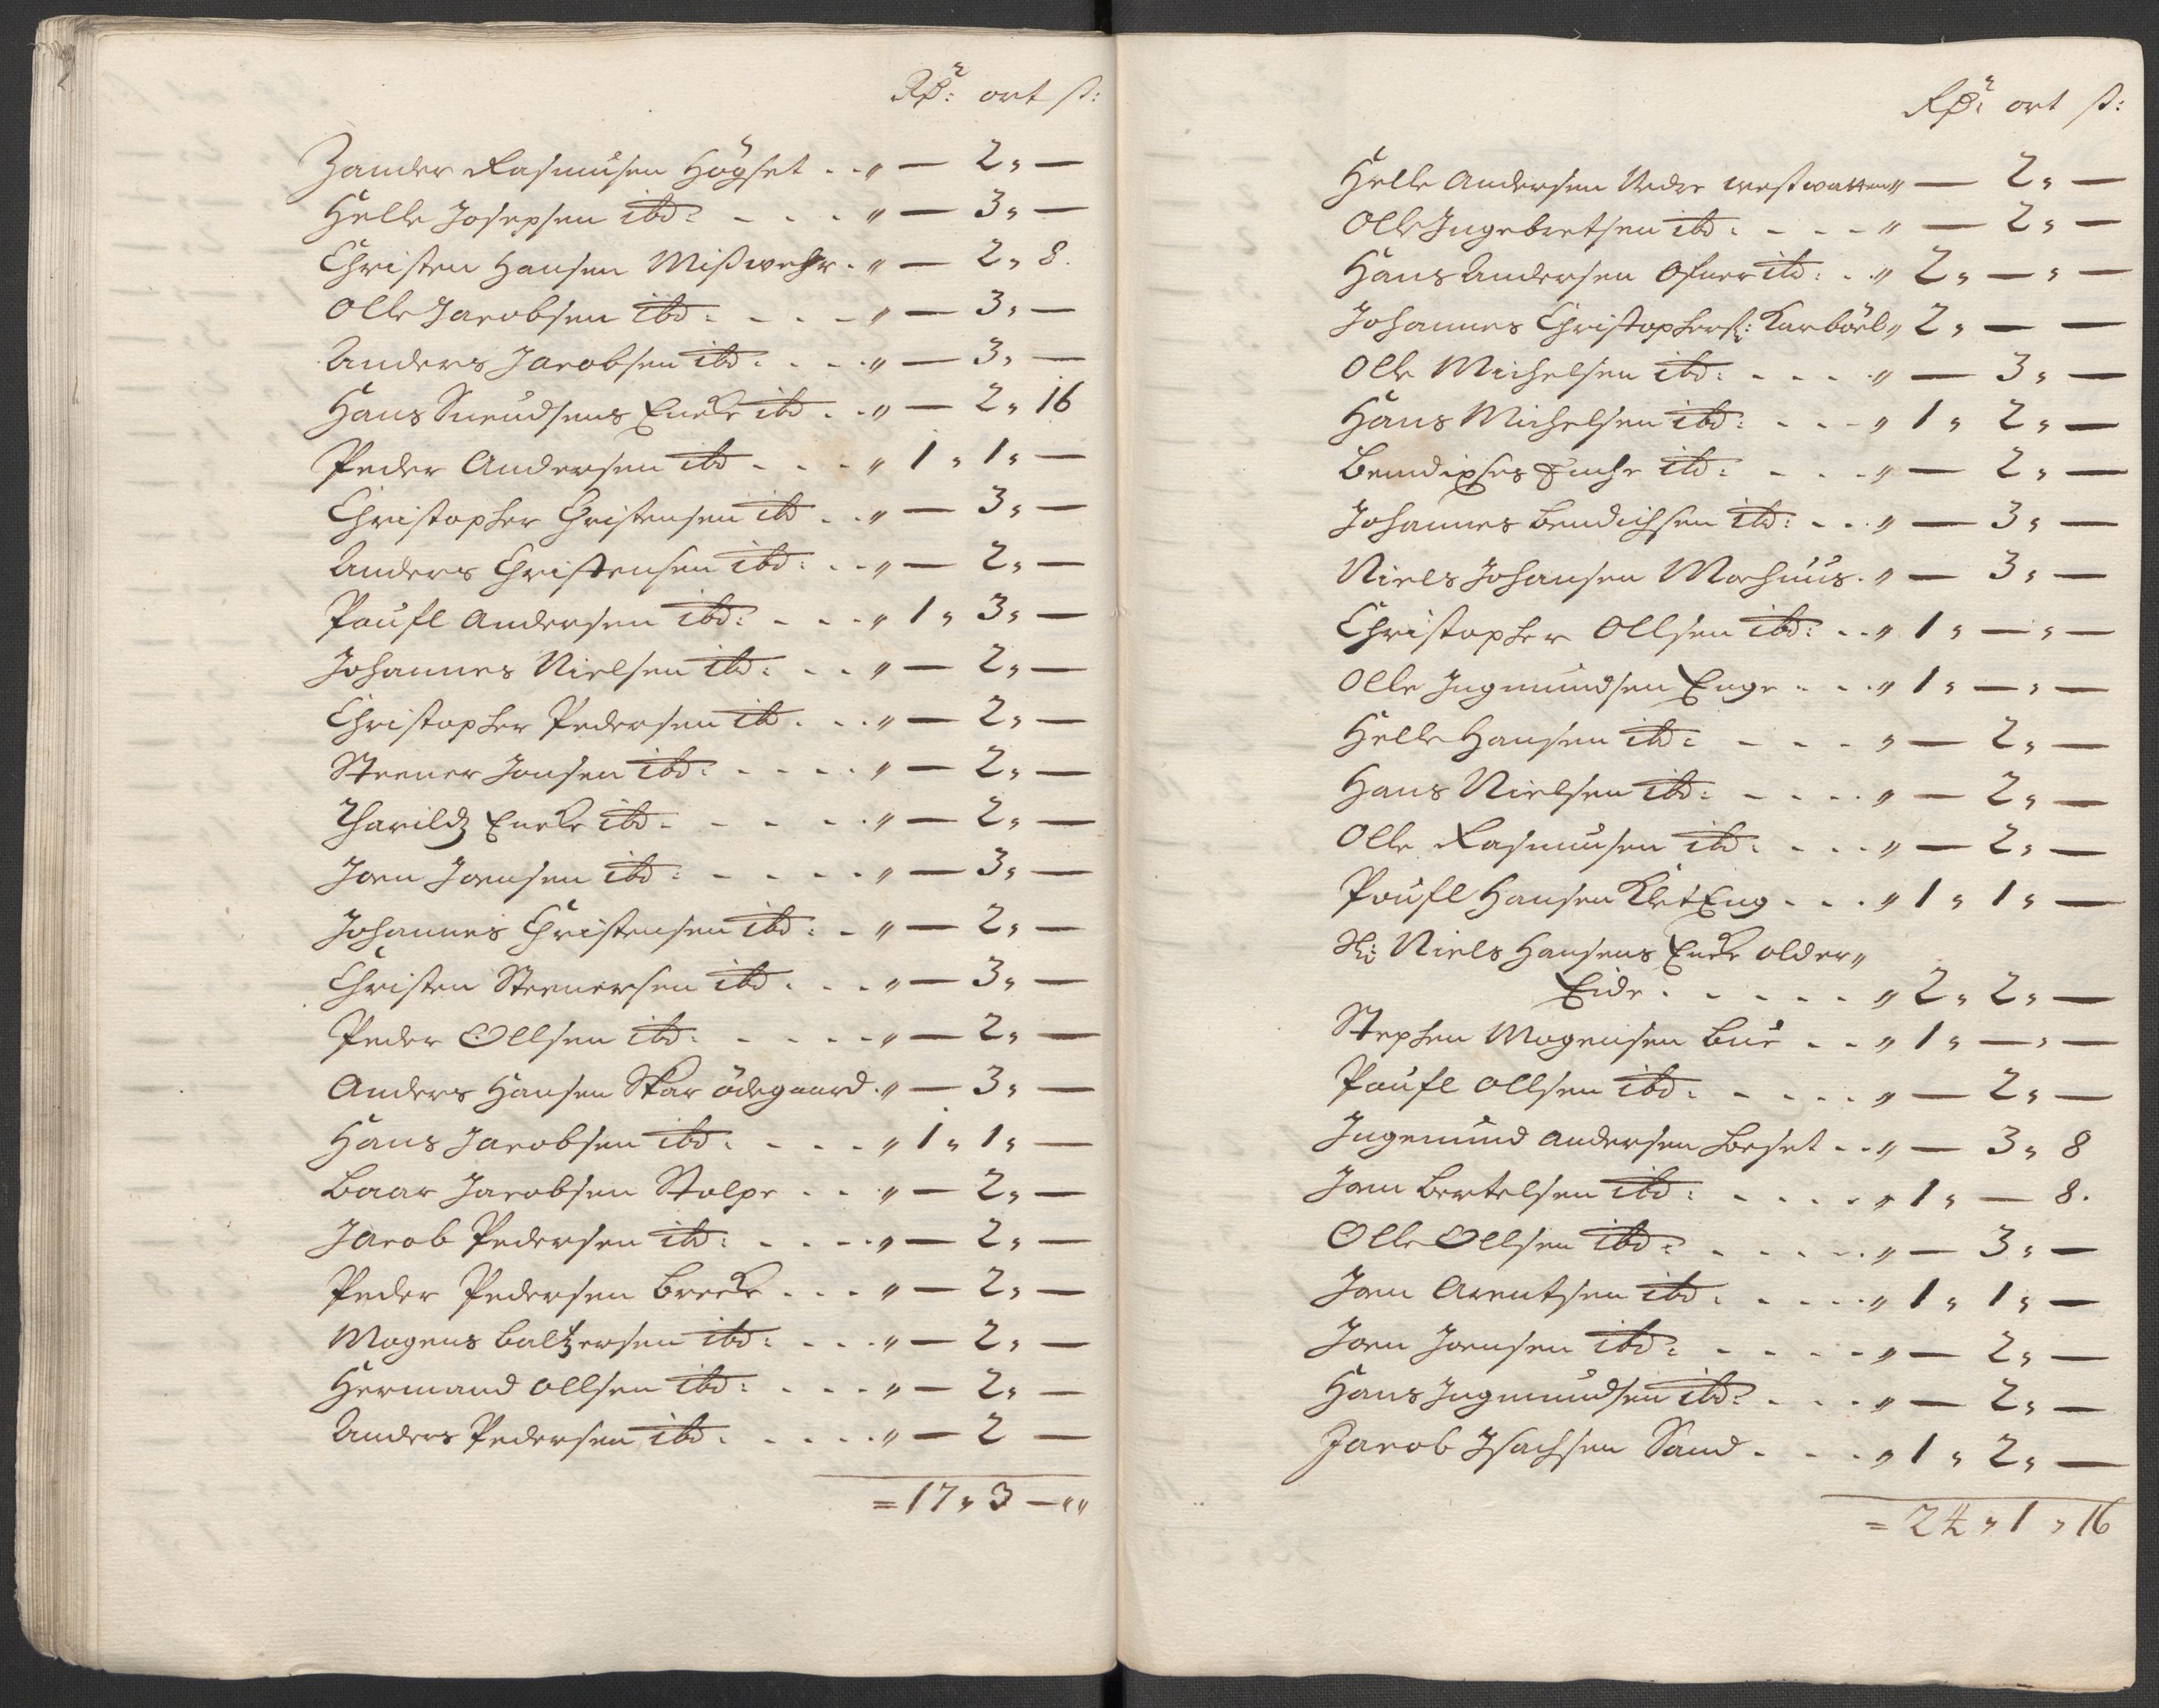 Rdr: ort ß:
Zander Rasmusen Högset . . „ — 2 „ —
Helle Josepsen ibd: - - - „ — 3 „ —
Christen Hansen Mißwehr . „ — 2 „ 8.
Olle Jacobsen ibd: - - - „ — 3 „ —
Anders Jacobsen ibd: - - - „ — 3 „ —
Hans Knudsens Encke ibd . . „ — 2 „ 16
Peder Andersen ibd - - - „ 1 „ 1 „ —
Christopher Christensen ibd . . „ — 3 „ —
Anders Christensen ibd: . . „ — 2 „ —
Poufl Andersen ibd: - - - „ 1 „ 3 „ —
Johannes Nielsen ibd: - - „ — 2 „ —
Christopher Pedersen ibd . . . „ — 2 „ —
Steener Jonsen ibd: - - - - „ — 2 „ —
Tharildz Encke ibd - - - - „ — 2 „ —
Joen Joensen ibd: - - - - „ — 3 „ —
Johannes Christensen ibd: - „ — 2 „ —
Christen Steenersen ibd . . . „ — 3 „ —
Peder Ollsen ibd: - - - - „ — 2 „ —
Anders Hansen Skar ödegaard . „ — 3 „ —
Hans Jacobsen ibd: - - - „ 1 „ 1 „ —
Baar Jacobsen Stolpe . . . „ — 2 „ —
Jacob Pedersen ibd: - - - - „ — 2 „ —
Peder Pedersen Brecke . . . „ — 2 „ —
Mogens Baltzersen ibd: - - - „ — 2 „ —
Hermand Ollsen ibd: - - - „ — 2 „ —
Anders Pedersen ibd . - - - „ — 2 —
= 17 „ 3 — „„
Rdr: ort ß:
Helle Andersen Nedre westwatten „ — 2 „ —
Olle Ingebretsen ibd: - - - „ — 2 „ —
Hans Andersen Ofuer ibd: . . „ 2 „ — „ —
Johannes Christophers: Karböel „ 2 „ — —
Olle Michelsen ibd: - - - „ — 3 „ —
Hans Michelsen ibd: - - - „ 1 „ 2 „ —
Bendixses Enche ibd: - - - „ — 2 „ —
Johannes Bendichsen ibd: - - „ — 3 „ —
Niels Johansen Morhuus . „ — 3 „ —
Christopher Ollsen ibd: . . „ 1 „ — „ —
Olle Ingmundsen Enge - - „ 1 „ — „ —
Helle Hansen ibd: - - - „ — 2 „ —
Hans Nielsen ibd: - - - „ — 2 „ —
Olle Rasmusen ibd: - - - „ — 2 „ —
Poufl Hansen KletEng - - - „ 1 „ 1 „ —
Sl: Niels Hansens Encke older „
Eide . - - - - „ 2 „ 2 „ —
Stephen Mogensen Bue . . „ 1 „ — „ —
Poufl Ollsen ibd: - - - - „ — 2 „ —
Ingemund Andersen Boeset . . „ — 3 „ 8
Joen Bertelsen ibd: - - - - „ 1 „ — 8.
Olle Ollsen ibd: - - - - „ — 3 „ —
Joen Arentsen ibd: - - - - „ 1 „ 1 „ —
Joen Joensen ibd: - - - - „ — 2 „ —
Hans Ingemundsen ibd: - - - „ — 2 „ —
Jacob Isachsen Sand - - - „ 1 „ 2 „ —
= 24 „ 1 „ 16